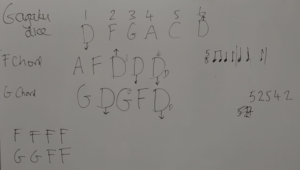 1 2 3 4 5 6
dice D F G A C D
F Chord A F D D D
G Chord G D G F D
52542
F F F F
G G F F